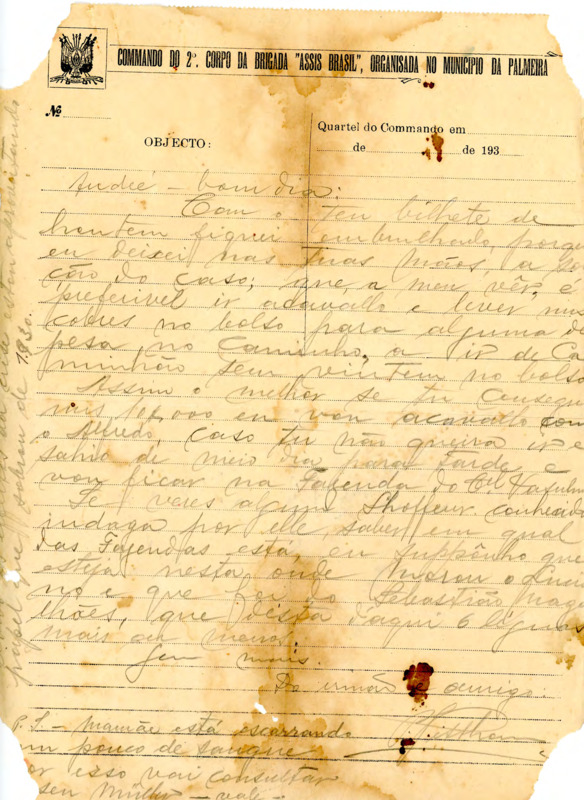 COMMANDO DO 2º. CORPO DA BRIGADA "ASSIS BRASIL", ORGANISADA NO MUNICIPIO DA PALMEIRA
Nº
OBJECTO:
Quartel do Commando em
de de 193
André - bom dia:
Com o teu bilhete de
hontem fiquei embrulhado, porque
eu deixei nas tuas mãos, a so
ção do caso; que, a meu vêr, é
preferivel ir acavallo e levar uns
cobres no bolso para alguma des
pesa no caminho, a ir de Ca
minhão sem vintem no bolso
Assim o melhor se tu consegu
mais eu vou acavallo com
o Alfredo, caso tu não queira ir e
sahio de meio dia para tarde e
vou ficar na Fazenda do Cel
Se veres algum Shoffeur conhecido
indaga por elle, saber em qual
das Fazendas está, eu suppônho que
esteja nesta onde morou o
no e que foi do Sebastião Mag
lhães, que dista d'aqui 6 leguas
mais ou menos.
Sem mais.
Do irmão e amigo
P. S. - Mamãe está escarrando
um pouco de sangue
por esso vai consultar
seu Müller - vale -
papel que sobrou de 1930.